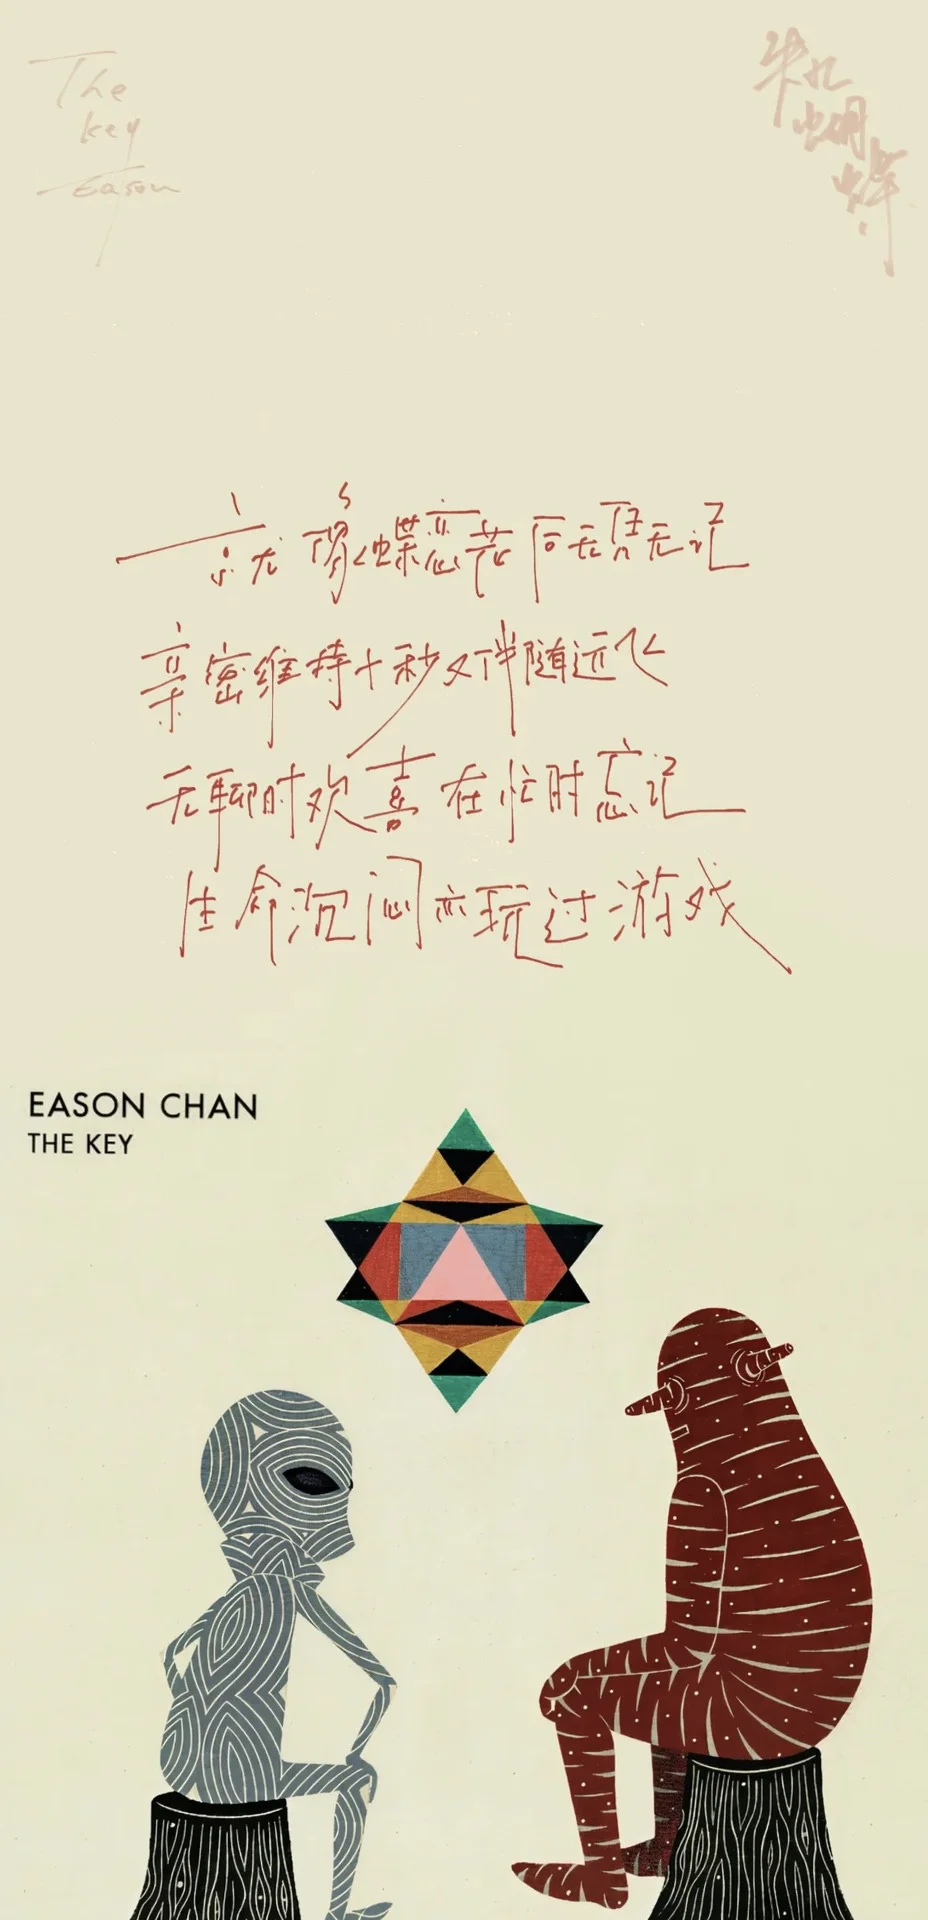 The
key
Eason
粒
蝴
蝶
就像蝶恋花后无凭无记
亲密维持十秒又伴随远飞
无聊时欢喜在忙时忘记
生命沉闷亦玩过游戏
EASON CHAN
THE KEY